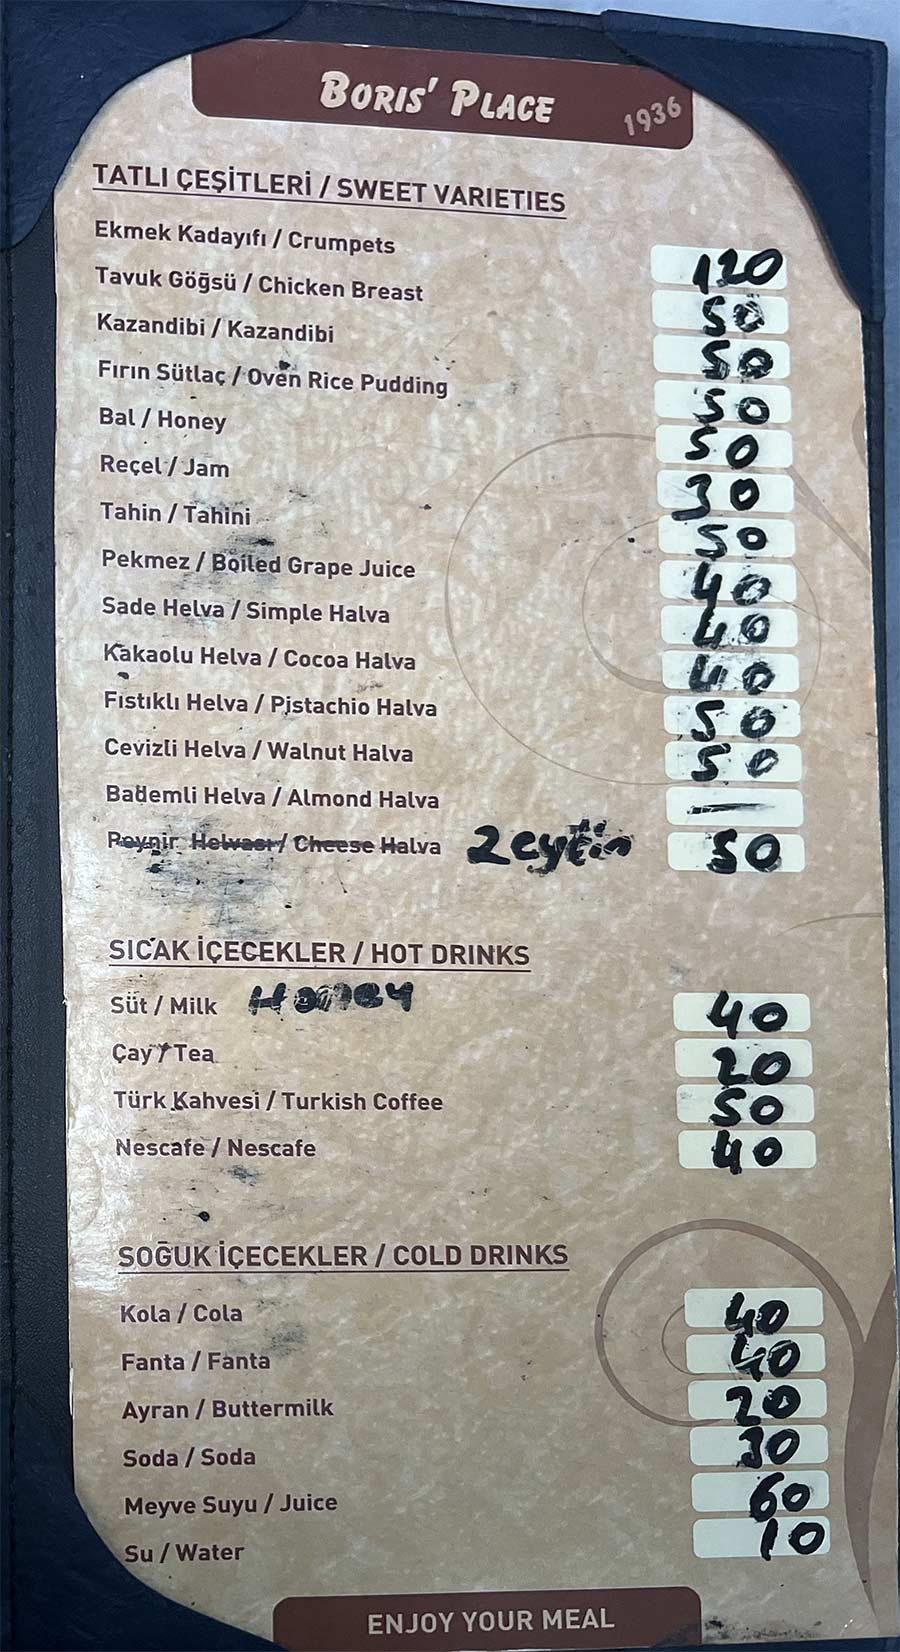 BORIS' PLACE 1936
TATLI ÇEŞİTLERİ / SWEET VARIETIES
Ekmek Kadayıfı / Crumpets 120
Tavuk Göğsü / Chicken Breast 50
Kazandibi / Kazandibi 50
Fırın Sütlaç / Oven Rice Pudding 50
Bal / Honey 50
Reçel / Jam 30
Tahin / Tahini 50
Pekmez / Boiled Grape Juice 40
Sade Helva / Simple Halva 40
Kakaolu Helva / Cocoa Halva 40
Fıstıklı Helva / Pistachio Halva 50
Cevizli Helva / Walnut Halva 50
Bademli Helva / Almond Halva —
Peynir Helvası / Cheese Halva Zeytin 50
SICAK İÇECEKLER / HOT DRINKS
Süt / Milk Honey 40
Çay / Tea 20
Türk Kahvesi / Turkish Coffee 50
Nescafe / Nescafe 40
SOĞUK İÇECEKLER / COLD DRINKS
Kola / Cola 40
Fanta / Fanta 40
Ayran / Buttermilk 20
Soda / Soda 30
Meyve Suyu / Juice 60
Su / Water 10
ENJOY YOUR MEAL